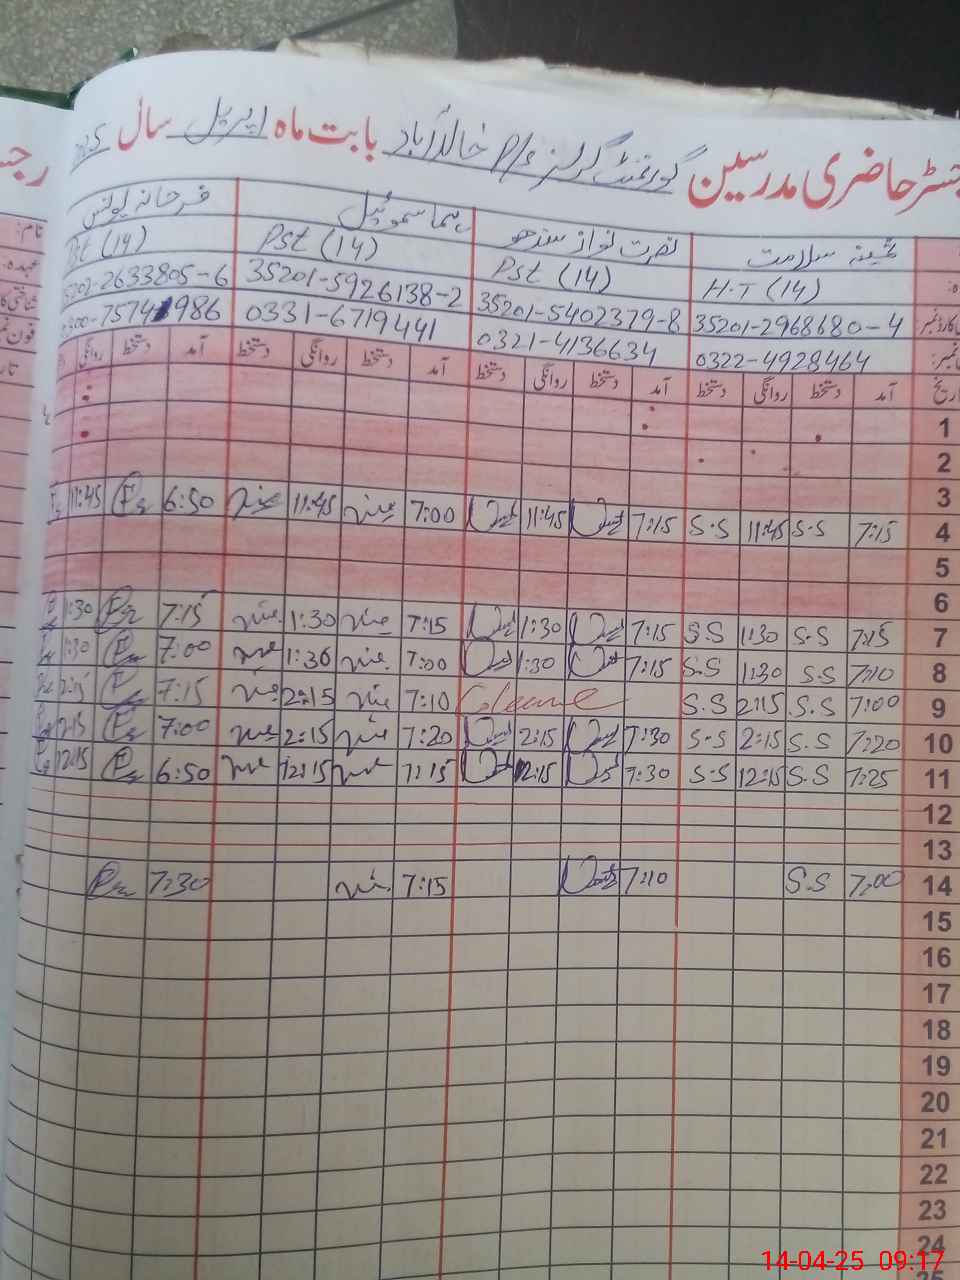 رجسٹر حاضری مدرسین گورنمنٹ گرلز P/S خالد آباد بابت ماہ اپریل سال
ثمینہ سلامت نصرت نواز سندھو ہما سموئیل فرحانہ یونس
H.T (14) Pst (14) Pst (14) Pst (14)
35201-2968680-4 35201-5402379-8 35201-5926138-2 35202-2633805-6
0322-4928464 0321-4136634 0331-6719441 0300-7574986
تاریخ آمد دستخط روانگی دستخط آمد دستخط روانگی دستخط آمد دستخط روانگی دستخط آمد دستخط روانگی
1
2
3
4 7:15 S.S 11:45 S.S 7:15 11:45 7:00 11:45 6:50 11:45
5
6
7 7:15 S.S 1:30 S.S 7:15 1:30 7:15 1:30 7:15 1:30
8 7:10 S.S 1:30 S.S 7:15 1:30 7:00 1:30 7:00 1:30
9 7:00 S.S 2:15 S.S 7:10 2:15 7:15 2:15
10 7:20 S.S 2:15 S.S 7:30 2:15 7:20 2:15 7:00 2:15
11 7:25 S.S 12:15 S.S 7:30 12:15 7:15 12:15 6:50 12:15
12
13
14 7:00 S.S 7:10 7:15 7:30
15
16
17
18
19
20
21
22
23
24
25
14-04-25 09:17